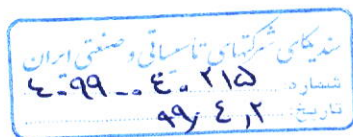 سندیکای شرکتهای تاسیساتی و صنعتی ایران
شماره: ۴۰۹۹۰۰۴۰۲۱۵
تاریخ: ۹۹/۴/۲